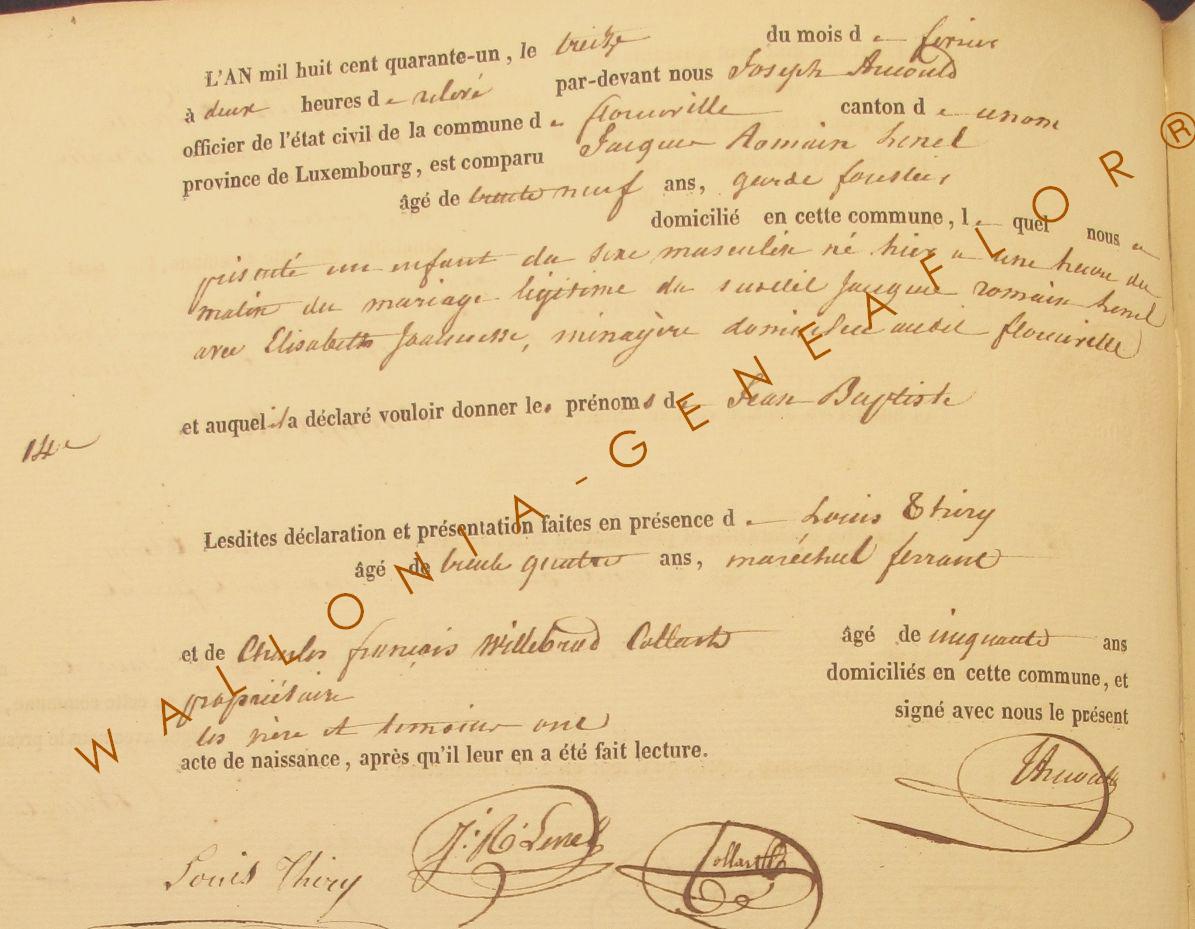 L'AN mil huit cent quarante-un, le treize du mois de fevrier
à deux heures de relevé par-devant nous Joseph Arnould
officier de l'état civil de la commune de florenville canton de
province de Luxembourg, est comparu Jacques Romain Lenel
âgé de trente neuf ans, garde forestier
domicilié en cette commune, lequel nous a
présenté un enfant du sexe masculin né hier a une heure du
matin du mariage légitime du susdit Jacques romain Lenel
avec Elisabeth, ménagère domiciliée audit florenville
et auquel il a déclaré vouloir donner les prénoms de Jean Baptiste
14e
Lesdites déclaration et présentation faites en présence de Louis Thiry
âgé de trente quatre ans, maréchal ferrant
et de Charles françois Willebrod Collard âgé de cinquante ans
propriétaire domiciliés en cette commune, et
les père et temoins ont signé avec nous le présent
acte de naissance, après qu'il leur en a été fait lecture.
JArnould
J: R: Lenel
Louis Thiry Collard
WALLONIA-GENEAFLOR®